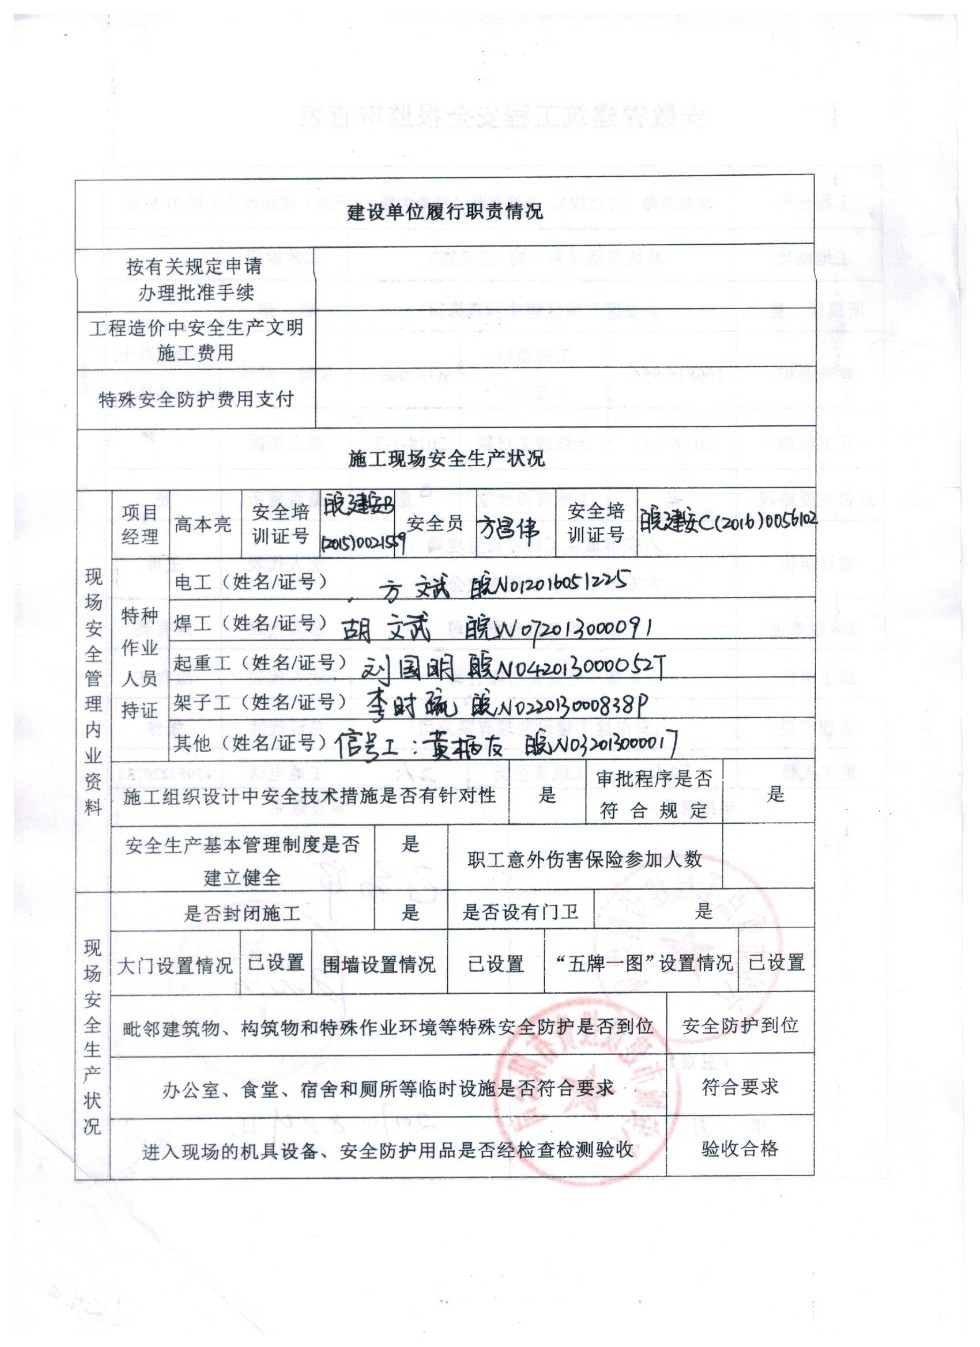 建设单位履行职责情况
按有关规定申请
办理批准手续
工程造价中安全生产文明
施工费用
特殊安全防护费用支付
施工现场安全生产状况
现场安全管理内业资料
项目
经理
高本亮
安全培
训证号
皖建安B
(2015)0021559
安全员
方昌伟
安全培
训证号
皖建安C(2016)0056102
特种
作业
人员
持证
电工（姓名/证号） 方文斌 皖N012016051225
焊工（姓名/证号） 胡文武 皖N072013000091
起重工（姓名/证号） 刘国明 皖N042013000052T
架子工（姓名/证号） 李时 皖N022013000838P
其他（姓名/证号） 信号工：黄柄友 皖N032013000017
施工组织设计中安全技术措施是否有针对性 是
审批程序是否
符合规定
是
安全生产基本管理制度是否
建立健全
是
职工意外伤害保险参加人数
现场安全生产状况
是否封闭施工 是 是否设有门卫 是
大门设置情况 已设置 围墙设置情况 已设置 “五牌一图”设置情况 已设置
毗邻建筑物、构筑物和特殊作业环境等特殊安全防护是否到位 安全防护到位
办公室、食堂、宿舍和厕所等临时设施是否符合要求 符合要求
进入现场的机具设备、安全防护用品是否经检查检测验收 验收合格